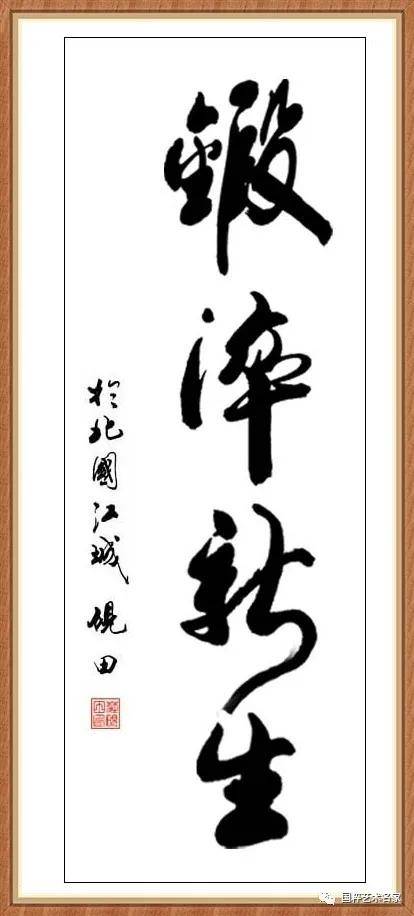 鍛淬新生
於北國江城 硯田
国粹艺术名家